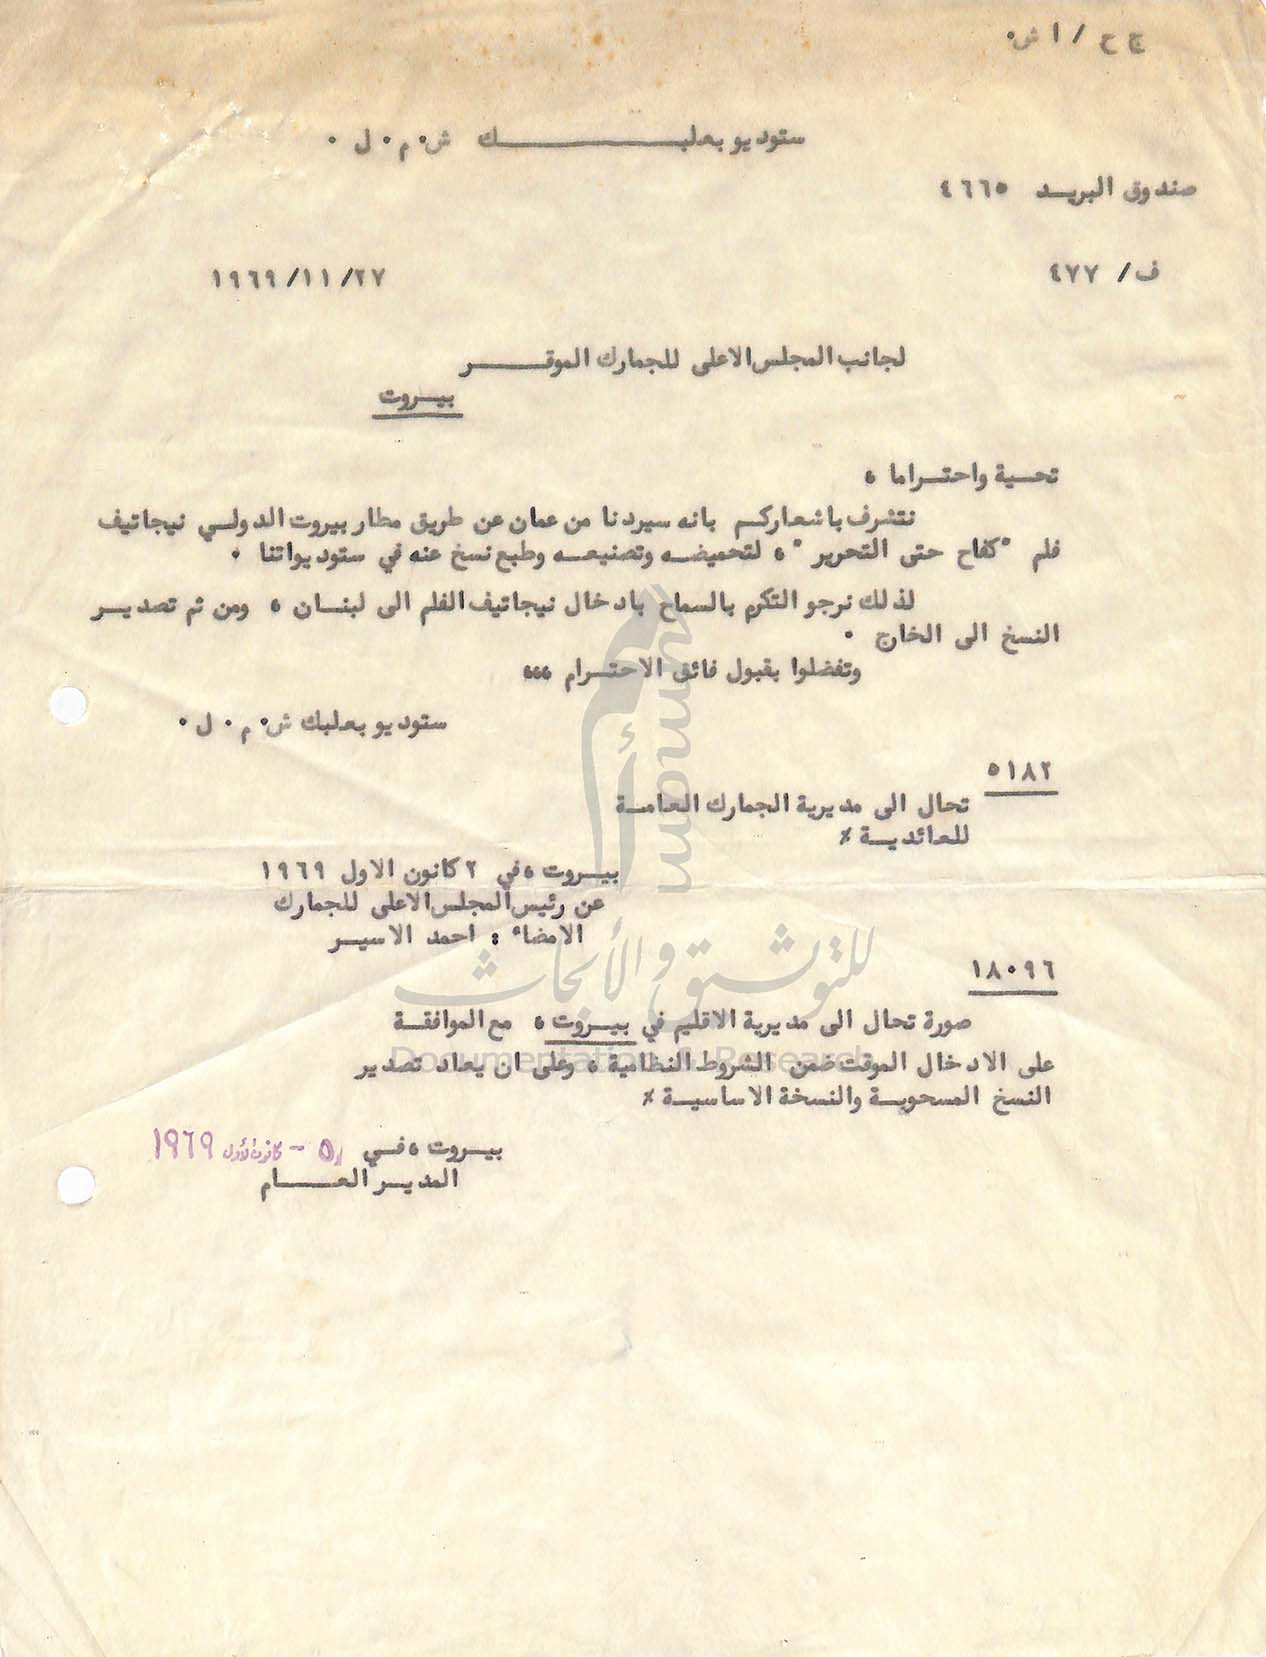 ج ح / ١ ش٠
ستوديو بعلبـــــــــك ش٠ م٠ ل٠
صندوق البريـد ٤٦٦٥
ف/ ٤٧٧
١٩٦٩/١١/٢٧
لجانب المجلس الاعلى للجمارك الموقـــر
بيـروت
تحـية واحتـراما ،
نتشرف باشعاركـم بانه سيردنا من عمان عن طريق مطار بيروت الدولـي نيجاتيف
فلم "كفاح حتى التحرير "، لتحميضـه وتصنيعـه وطبع نسخ عنه في ستوديواتنا ٠
لذلك نرجو التكرم بالسماح بادخال نيجاتيف الفلم الى لبنـان ، ومن ثم تصديـر
النسخ الى الخارج ٠
وتفضلوا بقبول فائق الاحتـرام ،،،
ستوديو بعلبك ش٠ م٠ ل٠
٥١٨٢
تحال الى مديرية الجمارك العامـة
للعائديـة ٪
بيـروت ،في ٢ كانون الاول ١٩٦٩
عن رئيس المجلس الاعلى للجمارك
الامضاء : احمد الاسيـر
١٨٠٩٦
صورة تحال الى مديرية الاقليم في بيـروت ، مع الموافقـة
على الادخال الموقت ضمن الشروط النظامية ، وعلى ان يعاد تصدير
النسخ المسحوبـة والنسخة الاساسيـة ٪
بيـروت ،فـي ٥ - كانون الأول ١٩٦٩
المديـر العـــام
أمم
umam
للتوثيق والأبحاث
Documentation & Research